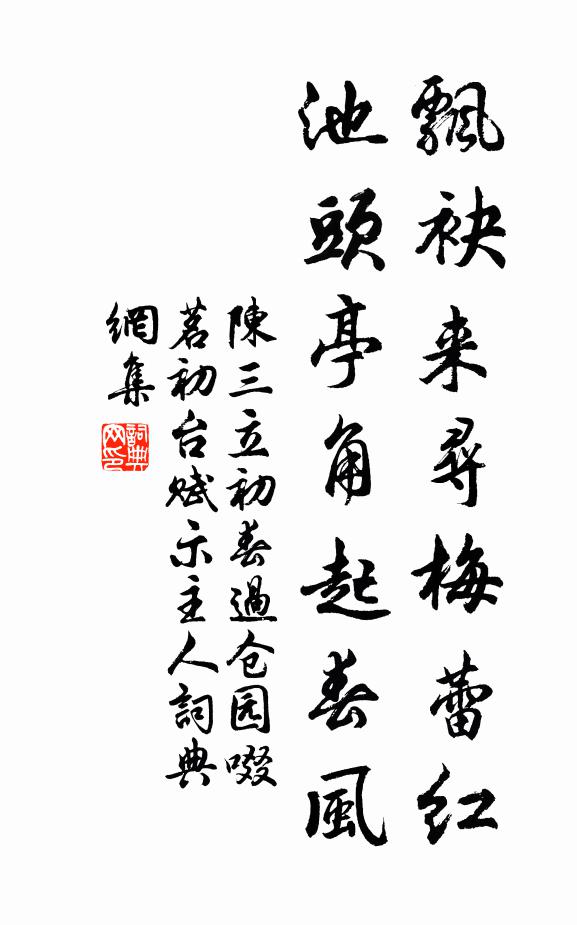 飄袂来尋梅蕾紅
池頭亭角起春風
陳三立初春過仓园啜
茗初台赋示主人詞典
網集
詞典
网印